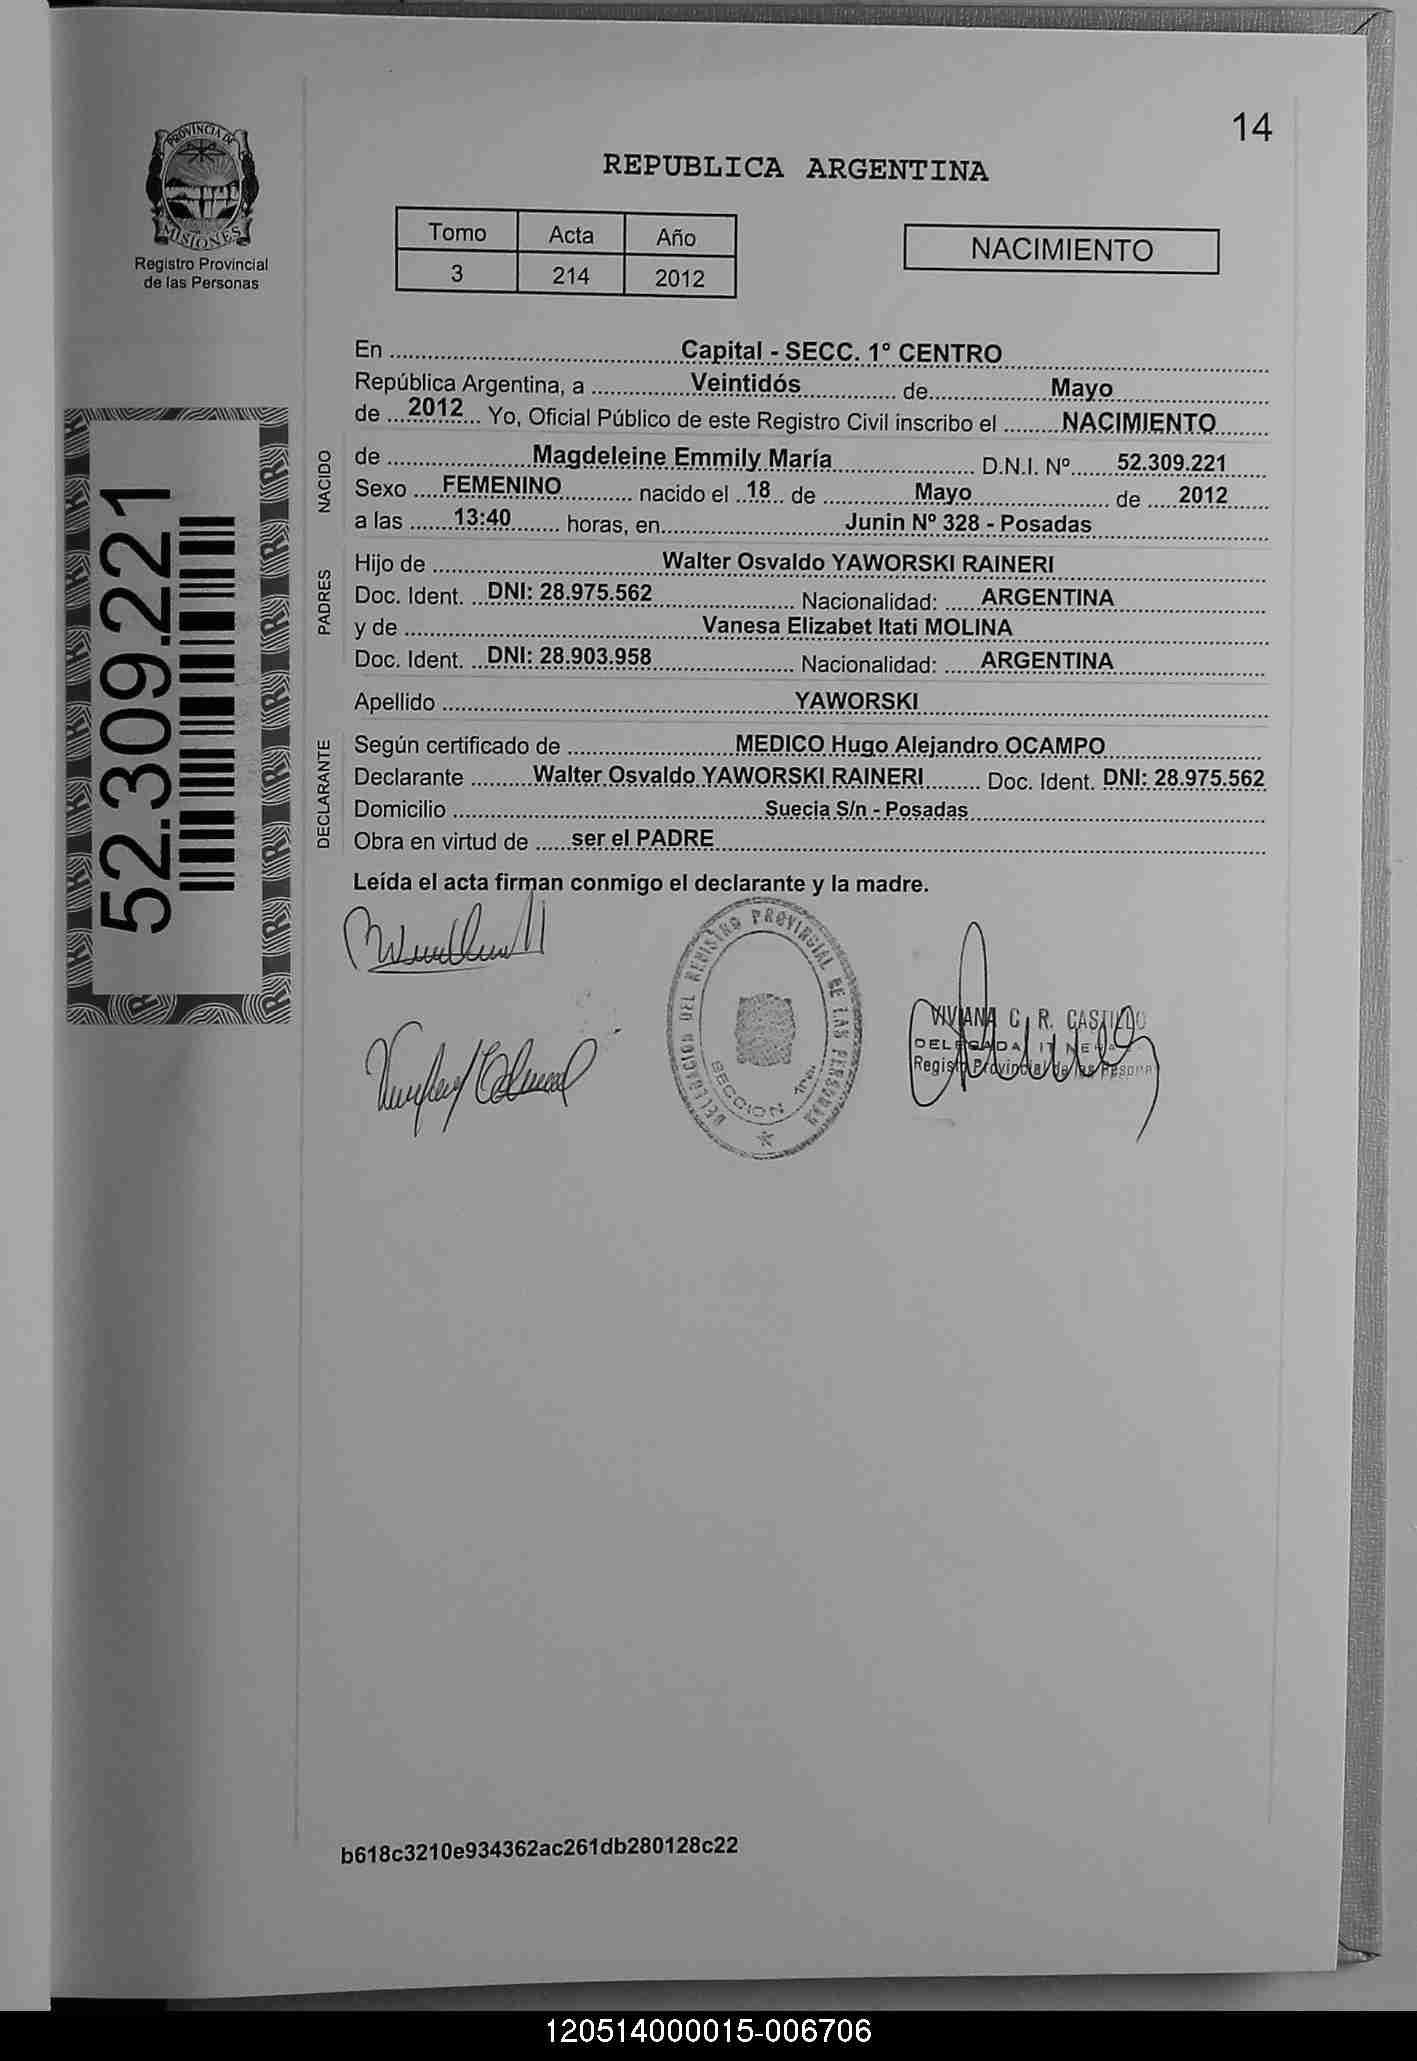 14
PROVINCIA DE
MISIONES
Registro Provincial
de las Personas
REPUBLICA ARGENTINA
Tomo Acta Año
3 214 2012
NACIMIENTO
En Capital - SECC. 1° CENTRO
República Argentina, a Veintidós de Mayo
de 2012 Yo, Oficial Público de este Registro Civil inscribo el NACIMIENTO
NACIDO
de Magdeleine Emmily María D.N.I. Nº 52.309.221
Sexo FEMENINO nacido el 18 de Mayo de 2012
a las 13:40 horas, en Junin Nº 328 - Posadas
PADRES
Hijo de Walter Osvaldo YAWORSKI RAINERI
Doc. Ident. DNI: 28.975.562 Nacionalidad: ARGENTINA
y de Vanesa Elizabet Itati MOLINA
Doc. Ident. DNI: 28.903.958 Nacionalidad: ARGENTINA
Apellido YAWORSKI
DECLARANTE
Según certificado de MEDICO Hugo Alejandro OCAMPO
Declarante Walter Osvaldo YAWORSKI RAINERI Doc. Ident. DNI: 28.975.562
Domicilio Suecia S/n - Posadas
Obra en virtud de ser el PADRE
Leída el acta firman conmigo el declarante y la madre.
52.309.221
DELEGACION DEL REGISTRO PROVINCIAL DE LAS PERSONAS
SECCION 1ra.
VIVIANA C. R. CASTILLO
DELEGADA ITINERA
Registro Provincial de las Personas
b618c3210e934362ac261db280128c22
120514000015-006706